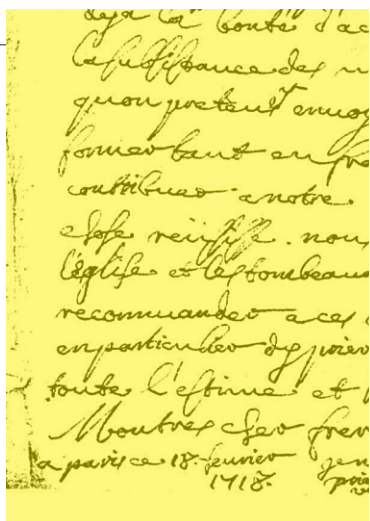 deja la bonté d'ac
la subsistance des
quon pretend envoy
former tant en fra
contribuer a notre
chose reussisse. nous
l'eglise et les tombeaux
recommander a ces
en particulier de prier
toute l'estime et
Mon tres cher frer
a paris ce 18. feurier
1718.